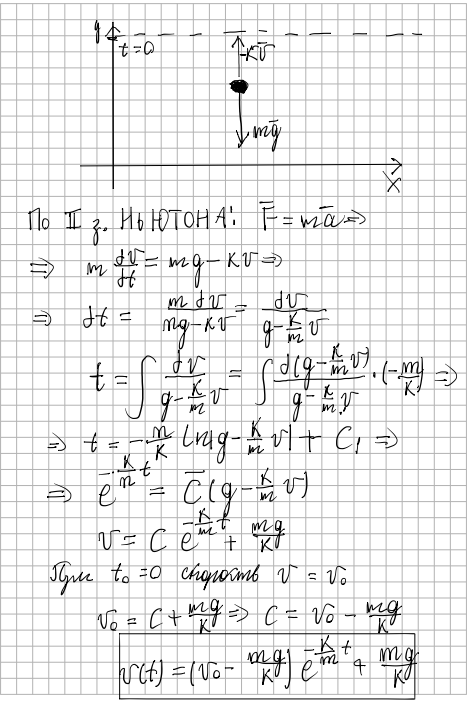 y
t=0
-kv̅
mg̅
x
По II з. НьЮТОНА: F̅ = ma̅ ⇒
⇒ m dv/dt = mg - kv ⇒
⇒ dt = m dv/(mg - kv) = dv/(g - k/m v)
t = ∫ dv/(g - k/m v) = ∫ d(g - k/m v)/(g - k/m v) · (-m/k) ⇒
⇒ t = -m/k ln|g - k/m v| + C₁ ⇒
⇒ e^(-k/m t) = C̅ (g - k/m v)
v = C e^(-k/m t) + mg/k
При t₀=0 скорость v = v₀
v₀ = C + mg/k ⇒ C = v₀ - mg/k
v(t) = (v₀ - mg/k) e^(-k/m t) + mg/k